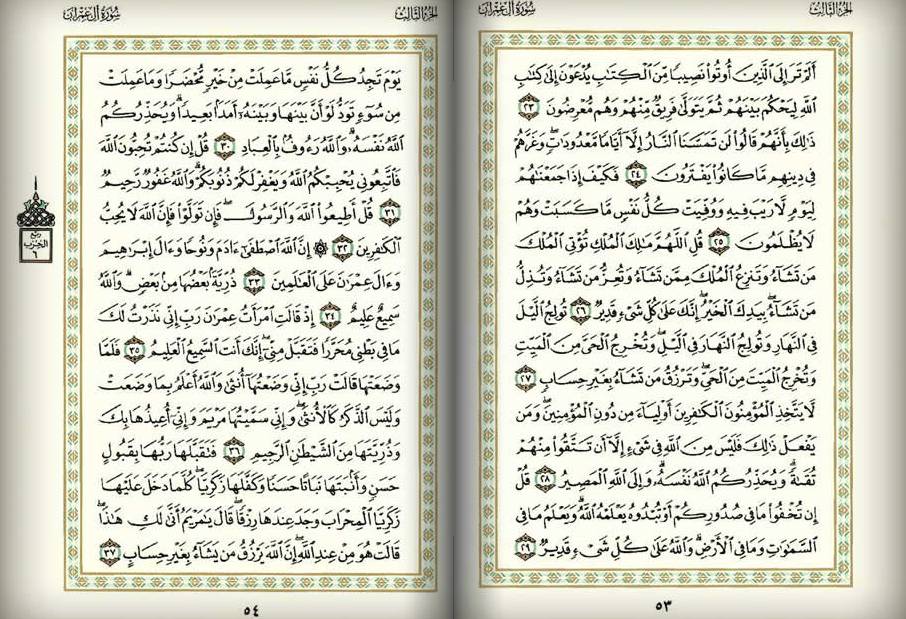 سُورَةُ آلِ عِمۡرَانَ
الجُزْءُ الثَّالِثُ
أَلَمۡ تَرَ إِلَى ٱلَّذِينَ أُوتُواْ نَصِيبٗا مِّنَ ٱلۡكِتَٰبِ يُدۡعَوۡنَ إِلَىٰ كِتَٰبِ
ٱللَّهِ لِيَحۡكُمَ بَيۡنَهُمۡ ثُمَّ يَتَوَلَّىٰ فَرِيقٞ مِّنۡهُمۡ وَهُم مُّعۡرِضُونَ ٢٣
ذَٰلِكَ بِأَنَّهُمۡ قَالُواْ لَن تَمَسَّنَا ٱلنَّارُ إِلَّآ أَيَّامٗا مَّعۡدُودَٰتٖۖ وَغَرَّهُمۡ
فِي دِينِهِم مَّا كَانُواْ يَفۡتَرُونَ ٢٤ فَكَيۡفَ إِذَا جَمَعۡنَٰهُمۡ
لِيَوۡمٖ لَّا رَيۡبَ فِيهِ وَوُفِّيَتۡ كُلُّ نَفۡسٖ مَّا كَسَبَتۡ وَهُمۡ
لَا يُظۡلَمُونَ ٢٥ قُلِ ٱللَّهُمَّ مَٰلِكَ ٱلۡمُلۡكِ تُؤۡتِي ٱلۡمُلۡكَ
مَن تَشَآءُ وَتَنزِعُ ٱلۡمُلۡكَ مِمَّن تَشَآءُ وَتُعِزُّ مَن تَشَآءُ وَتُذِلُّ
مَن تَشَآءُۖ بِيَدِكَ ٱلۡخَيۡرُۖ إِنَّكَ عَلَىٰ كُلِّ شَيۡءٖ قَدِيرٞ ٢٦ تُولِجُ ٱلَّيۡلَ
فِي ٱلنَّهَارِ وَتُولِجُ ٱلنَّهَارَ فِي ٱلَّيۡلِۖ وَتُخۡرِجُ ٱلۡحَيَّ مِنَ ٱلۡمَيِّتِ
وَتُخۡرِجُ ٱلۡمَيِّتَ مِنَ ٱلۡحَيِّۖ وَتَرۡزُقُ مَن تَشَآءُ بِغَيۡرِ حِسَابٖ ٢٧
لَّا يَتَّخِذِ ٱلۡمُؤۡمِنُونَ ٱلۡكَٰفِرِينَ أَوۡلِيَآءَ مِن دُونِ ٱلۡمُؤۡمِنِينَۖ وَمَن
يَفۡعَلۡ ذَٰلِكَ فَلَيۡسَ مِنَ ٱللَّهِ فِي شَيۡءٍ إِلَّآ أَن تَتَّقُواْ مِنۡهُمۡ
تُقَىٰةٗۗ وَيُحَذِّرُكُمُ ٱللَّهُ نَفۡسَهُۥۗ وَإِلَى ٱللَّهِ ٱلۡمَصِيرُ ٢٨ قُلۡ
إِن تُخۡفُواْ مَا فِي صُدُورِكُمۡ أَوۡ تُبۡدُوهُ يَعۡلَمۡهُ ٱللَّهُۗ وَيَعۡلَمُ مَا فِي
ٱلسَّمَٰوَٰتِ وَمَا فِي ٱلۡأَرۡضِۗ وَٱللَّهُ عَلَىٰ كُلِّ شَيۡءٖ قَدِيرٞ ٢٩
٥٣
الجُزْءُ الثَّالِثُ
سُورَةُ آلِ عِمۡرَانَ
يَوۡمَ تَجِدُ كُلُّ نَفۡسٖ مَّا عَمِلَتۡ مِنۡ خَيۡرٖ مُّحۡضَرٗا وَمَا عَمِلَتۡ
مِن سُوٓءٖ تَوَدُّ لَوۡ أَنَّ بَيۡنَهَا وَبَيۡنَهُۥٓ أَمَدَۢا بَعِيدٗاۗ وَيُحَذِّرُكُمُ
ٱللَّهُ نَفۡسَهُۥۗ وَٱللَّهُ رَءُوفُۢ بِٱلۡعِبَادِ ٣٠ قُلۡ إِن كُنتُمۡ تُحِبُّونَ ٱللَّهَ
فَٱتَّبِعُونِي يُحۡبِبۡكُمُ ٱللَّهُ وَيَغۡفِرۡ لَكُمۡ ذُنُوبَكُمۡۗ وَٱللَّهُ غَفُورٞ رَّحِيمٞ
٣١ قُلۡ أَطِيعُواْ ٱللَّهَ وَٱلرَّسُولَۖ فَإِن تَوَلَّوۡاْ فَإِنَّ ٱللَّهَ لَا يُحِبُّ
ٱلۡكَٰفِرِينَ ٣٢ ۞ إِنَّ ٱللَّهَ ٱصۡطَفَىٰٓ ءَادَمَ وَنُوحٗا وَءَالَ إِبۡرَٰهِيمَ
وَءَالَ عِمۡرَٰنَ عَلَى ٱلۡعَٰلَمِينَ ٣٣ ذُرِّيَّةَۢ بَعۡضُهَا مِنۢ بَعۡضٖۗ وَٱللَّهُ
سَمِيعٌ عَلِيمٌ ٣٤ إِذۡ قَالَتِ ٱمۡرَأَتُ عِمۡرَٰنَ رَبِّ إِنِّي نَذَرۡتُ لَكَ
مَا فِي بَطۡنِي مُحَرَّرٗا فَتَقَبَّلۡ مِنِّيٓۖ إِنَّكَ أَنتَ ٱلسَّمِيعُ ٱلۡعَلِيمُ ٣٥ فَلَمَّا
وَضَعَتۡهَا قَالَتۡ رَبِّ إِنِّي وَضَعۡتُهَآ أُنثَىٰ وَٱللَّهُ أَعۡلَمُ بِمَا وَضَعَتۡ
وَلَيۡسَ ٱلذَّكَرُ كَٱلۡأُنثَىٰۖ وَإِنِّي سَمَّيۡتُهَا مَرۡيَمَ وَإِنِّيٓ أُعِيذُهَا بِكَ
وَذُرِّيَّتَهَا مِنَ ٱلشَّيۡطَٰنِ ٱلرَّجِيمِ ٣٦ فَتَقَبَّلَهَا رَبُّهَا بِقَبُولٍ
حَسَنٖ وَأَنۢبَتَهَا نَبَاتًا حَسَنٗا وَكَفَّلَهَا زَكَرِيَّاۖ كُلَّمَا دَخَلَ عَلَيۡهَا
زَكَرِيَّا ٱلۡمِحۡرَابَ وَجَدَ عِندَهَا رِزۡقٗاۖ قَالَ يَٰمَرۡيَمُ أَنَّىٰ لَكِ هَٰذَاۖ
قَالَتۡ هُوَ مِنۡ عِندِ ٱللَّهِۖ إِنَّ ٱللَّهَ يَرۡزُقُ مَن يَشَآءُ بِغَيۡرِ حِسَابٍ ٣٧
رُبع
الحِزْب
٦
٥٤